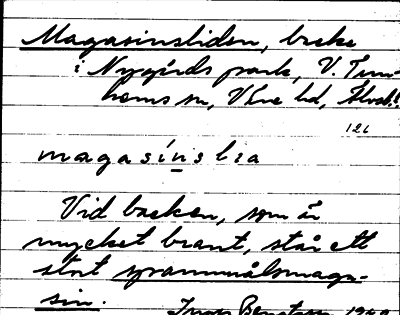 Magasinsliden, backe
i Nygårds park, V. Tun-
hems sn, Väne hd, Älvsb.
126
magasínslia
Vid backen, som är
mycket brant, står ett
stort spannmålsmaga-
sin.
Bengtsson 1940